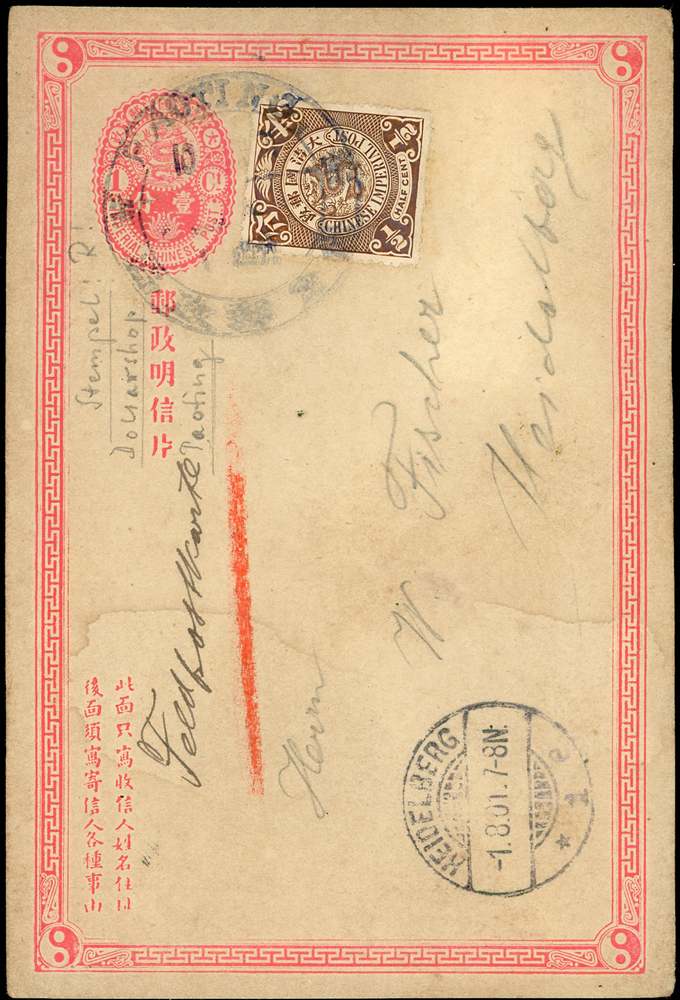 1 Ct
大清國郵政
CHINESE IMPERIAL POST
HALF CENT
1/2
1/2
郵政明信片
Stempel: R!
Paoting
Feldpostkarte
Herrn
W Fischer
Heidelberg
HEIDELBERG
-1.8.01.7-8N.
* 1 e
此面只寫收信人姓名住址
後面須寫寄信人各種事由